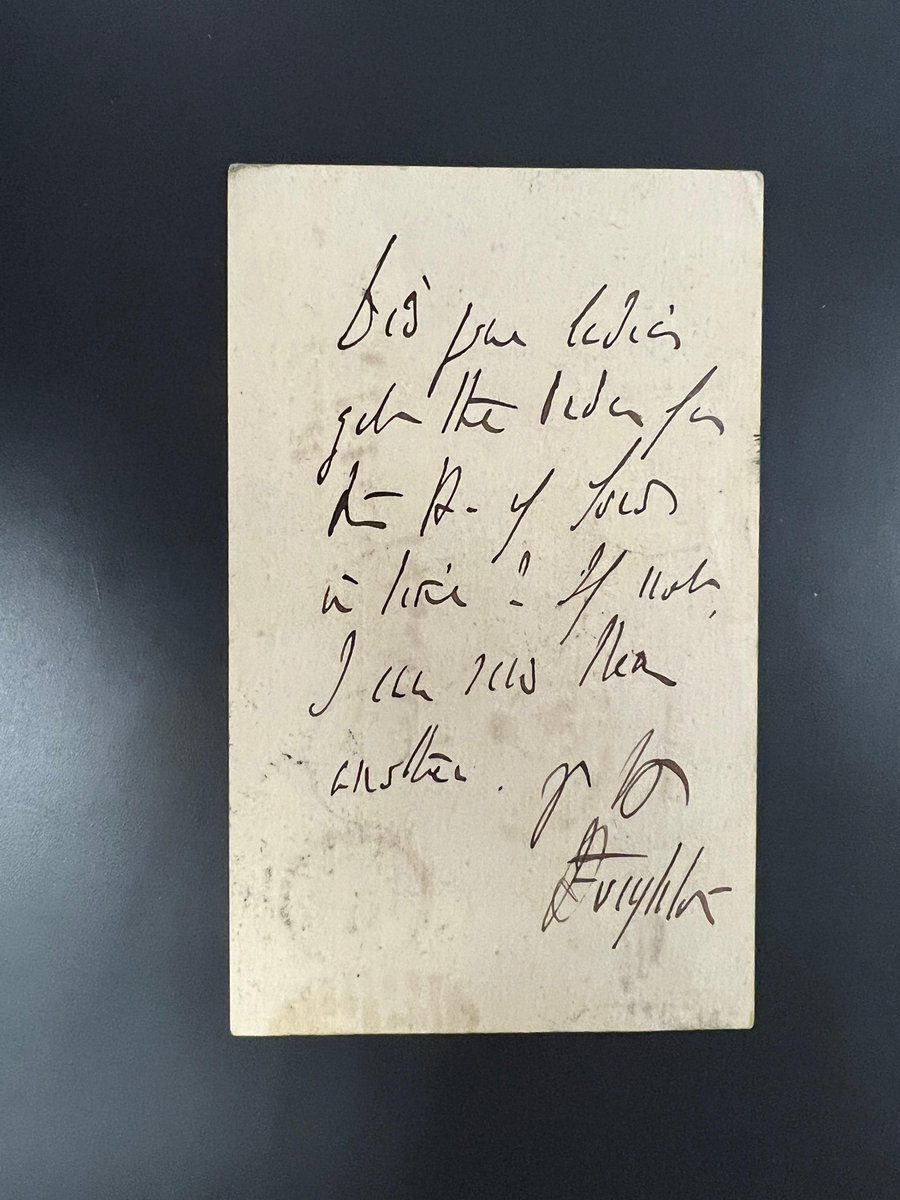 Did your ladies
get the order for
the H. of Lords
in time? If not,
I can send them
another. Yr
Leighton